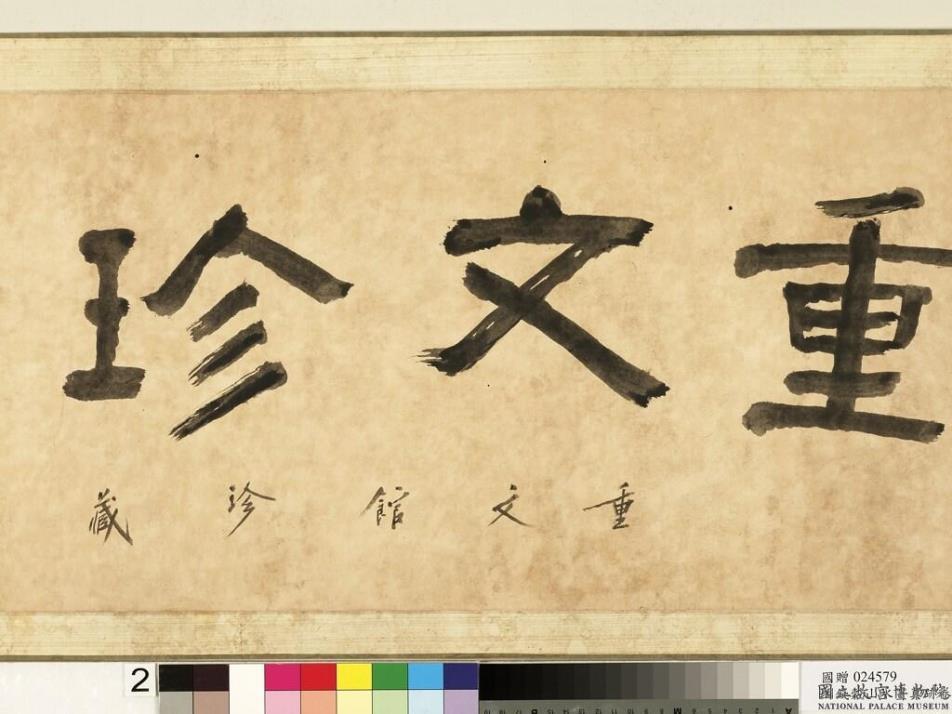 重文珍
重文館珍藏
2
國贈 024579
國立故宮博物院
NATIONAL PALACE MUSEUM